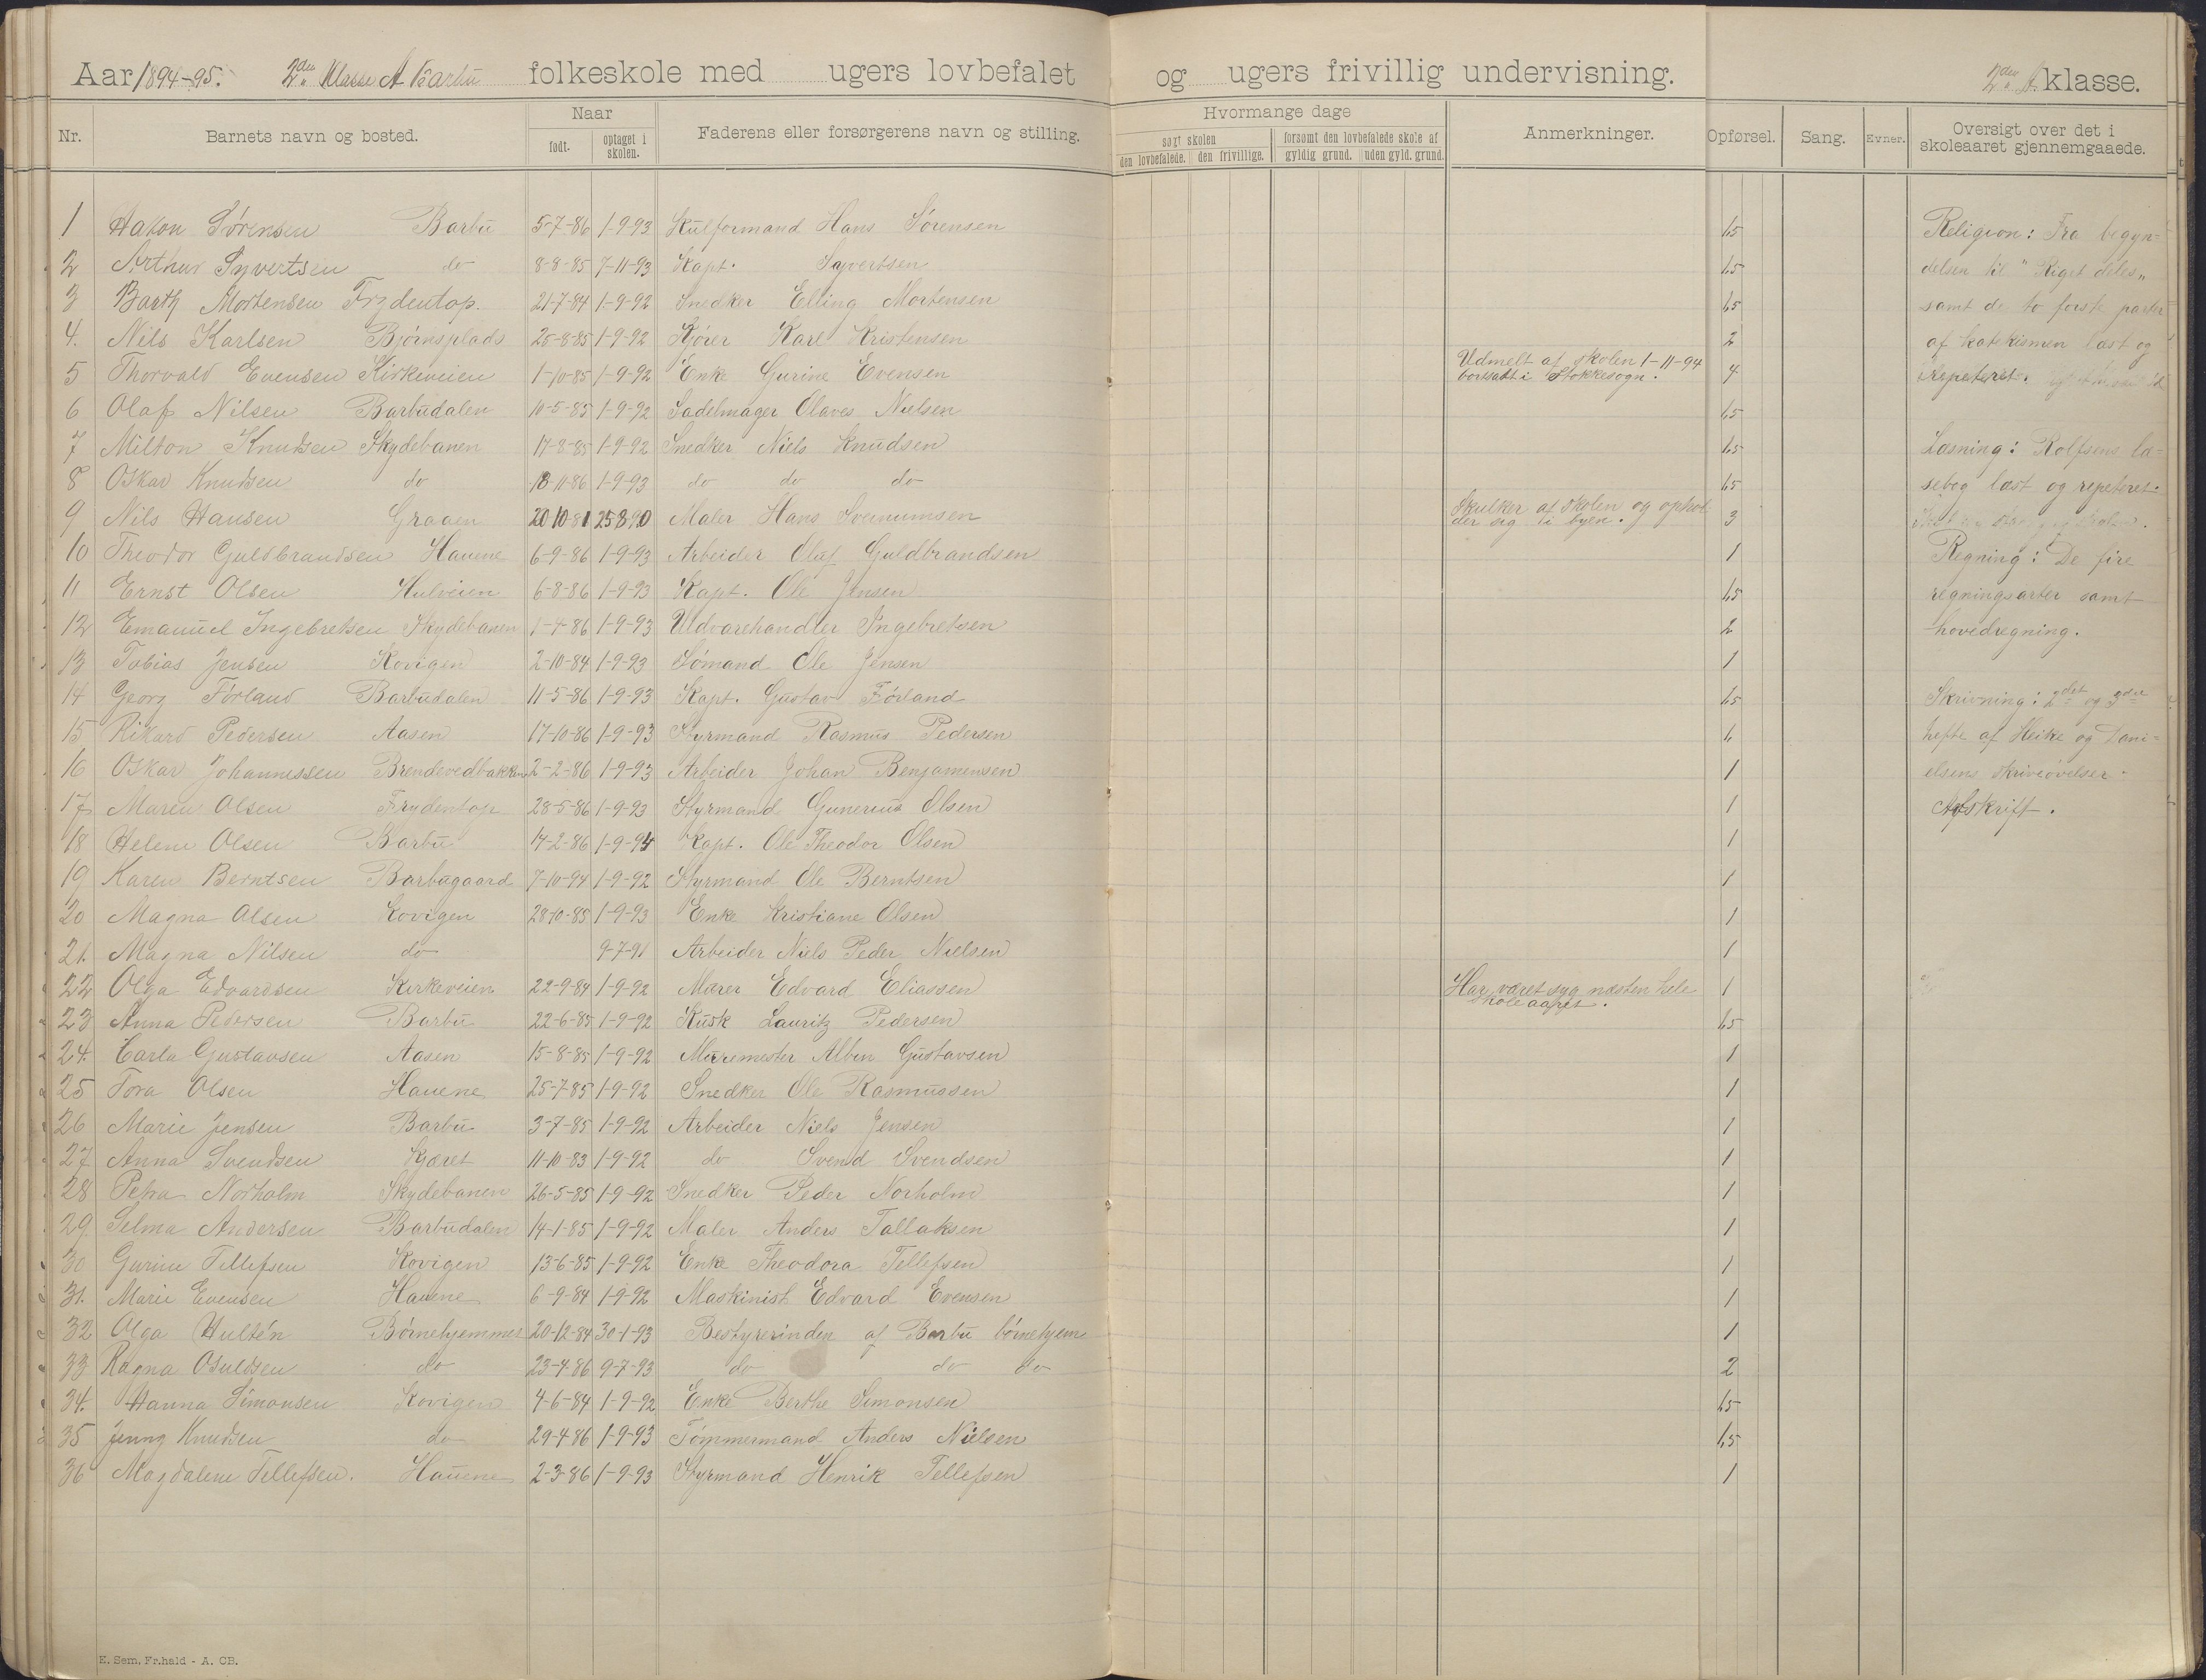 Aar 1894-95. 2den Klasse A Barbu folkeskole med ugers lovbefalet og ugers frivillig undervisning. 2den A. klasse.
Nr. Barnets navn og bosted. Naar født. optaget i skolen. Faderens eller forsørgerens navn og stilling. Hvormange dage søgt skolen den lovbefalede. den frivillige. forsømt den lovbefalede skole af gyldig grund. uden gyld. grund. Anmerkninger. Opførsel. Sang. Evner. Oversigt over det i skoleaaret gjennemgaaede.
1 Hakon Sørensen Barbu 5-7-86 1-9-93 Kulformand Hans Sørensen 1,5
2 Arthur Syvertsen do 8-8-85 7-11-93 Kapt. Syvertsen 1,5
3 Barth Mortensen Frydentop. 21-7-84 1-9-92 Snedker Elling Mortensen 1,5
4. Nils Karlsen Bjørnsplads 25-8-85 1-9-92 Kjører Karl Kristensen 2
5 Thorvald Evensen Kirkeveien 1-10-85 1-9-92 Enke Gurine Evensen Udmelt af skolen 1-11-94 bortsatt i Stokkesogn. 4
6 Olaf Nilsen Barbudalen 10-5-85 1-9-92 Sadelmager Olaves Nielsen 1,5
7 Milton Knudsen Skydebanen 17-8-85 1-9-92 Snedker Niels Knudsen 1,5
8 Oskar Knudsen do 18-11-86 1-9-93 do do do 1,5
9 Nils Hansen Graaen 20-10-81 25-8-90 Maler Hans Svenumsen Skulker af skolen og ophol- der sig i byen. 3
10 Theodor Guldbrandsen Hauene 6-9-86 1-9-93 Arbeider Oluf Guldbrandsen 1
11 Ernst Olsen Hulveien 6-8-86 1-9-93 Kapt. Ole Jensen 1,5
12 Emanuel Ingebretsen Skydebanen 1-4-86 1-9-93 Uldvarehandler Ingebretsen 2
13 Tobias Jensen Kovigen 2-10-84 1-9-93 Sømand Ole Jensen 1
14 Georg Førland Barbudalen 11-5-86 1-9-93 Kapt. Gustav Førland 1,5
15 Rikard Pedersen Aasen 17-10-86 1-9-93 Styrmand Rasmus Pedersen 1,
16 Oskar Johannessen Brendevedbakken 2-2-86 1-9-93 Arbeider Johan Benjamensen 1
17 Maren Olsen Frydentop 28-5-86 1-9-93 Styrmand Gunerius Olsen 1
18 Helene Olsen Barbu 4-2-86 1-9-94 Kapt. Ole Theodor Olsen 1
19 Karen Berntsen Barbugaard 7-10-94 1-9-92 Styrmand Ole Berntsen 1
20 Magna Olsen Kovigen 28-10-85 1-9-93 Enke Kristiane Olsen 1
21. Magna Nilsen do 9-7-91 Arbeider Niels Peder Nielsen 1
22 Olga Edvardsen Kirkeveien 22-9-84 1-9-92 Murer Edvard Eliassen Har været syg næsten hele skoleaaret. 1
23 Anna Pedersen Barbu 22-6-85 1-9-92 Kusk Lauritz Pedersen 1,5
24. Carla Gustavsen Aasen 15-8-85 1-9-92 Murermester Albin Gustavsen 1
25 Tora Olsen Hauene 25-7-85 1-9-92 Snedker Ole Rasmussen 1
26 Marie Jensen Barbu 3-7-85 1-9-92 Arbeider Niels Jensen 1
27 Anna Svendsen Kjæret 11-10-83 1-9-92 do Svend Svendsen 1
28 Petra Norholm Skydebanen 26-5-85 1-9-92 Snedker Peder Norholm 1
29. Selma Andersen Barbudalen 14-1-85 1-9-92 Maler Anders Tallaksen 1
30 Gurine Tellefsen Kovigen 13-6-85 1-9-92 Enke Theodora Tellefsen 1
31. Marie Evensen Hauene 6-9-84 1-9-92 Maskinist Edvard Evensen 1
32 Olga Hultén Børnehjemmet 20-12-84 30-1-93 Bestyrerinden af Barbu børnehjem 1
33 Ragna Osuldsen do 23-4-86 9-7-93 do do do 2
34. Hanna Simonsen Kovigen 4-6-84 1-9-92 Enke Berthe Simonsen 1,5
35 Jenny Knudsen do 29-4-86 1-9-93 Tømmermand Anders Nielsen 1,5
36 Magdalene Tellefsen. Hauene 2-3-86 1-9-93 Styrmand Henrik Tellefsen 1
Religion: Fra begyn=
delsen til "Riget deles"
samt de to første parter
af katekismen læst og
repeteret.
Læsning: Rolfsens læ=
sebog læst og repeteret.
Regning: De fire
regningsarter samt
hovedregning.
Skrivning: 2det og 3die
hefte af Heike og Dani=
elsens skriveøvelser.
Afskrift.
E. Sem, Fr.hald - A. CB.